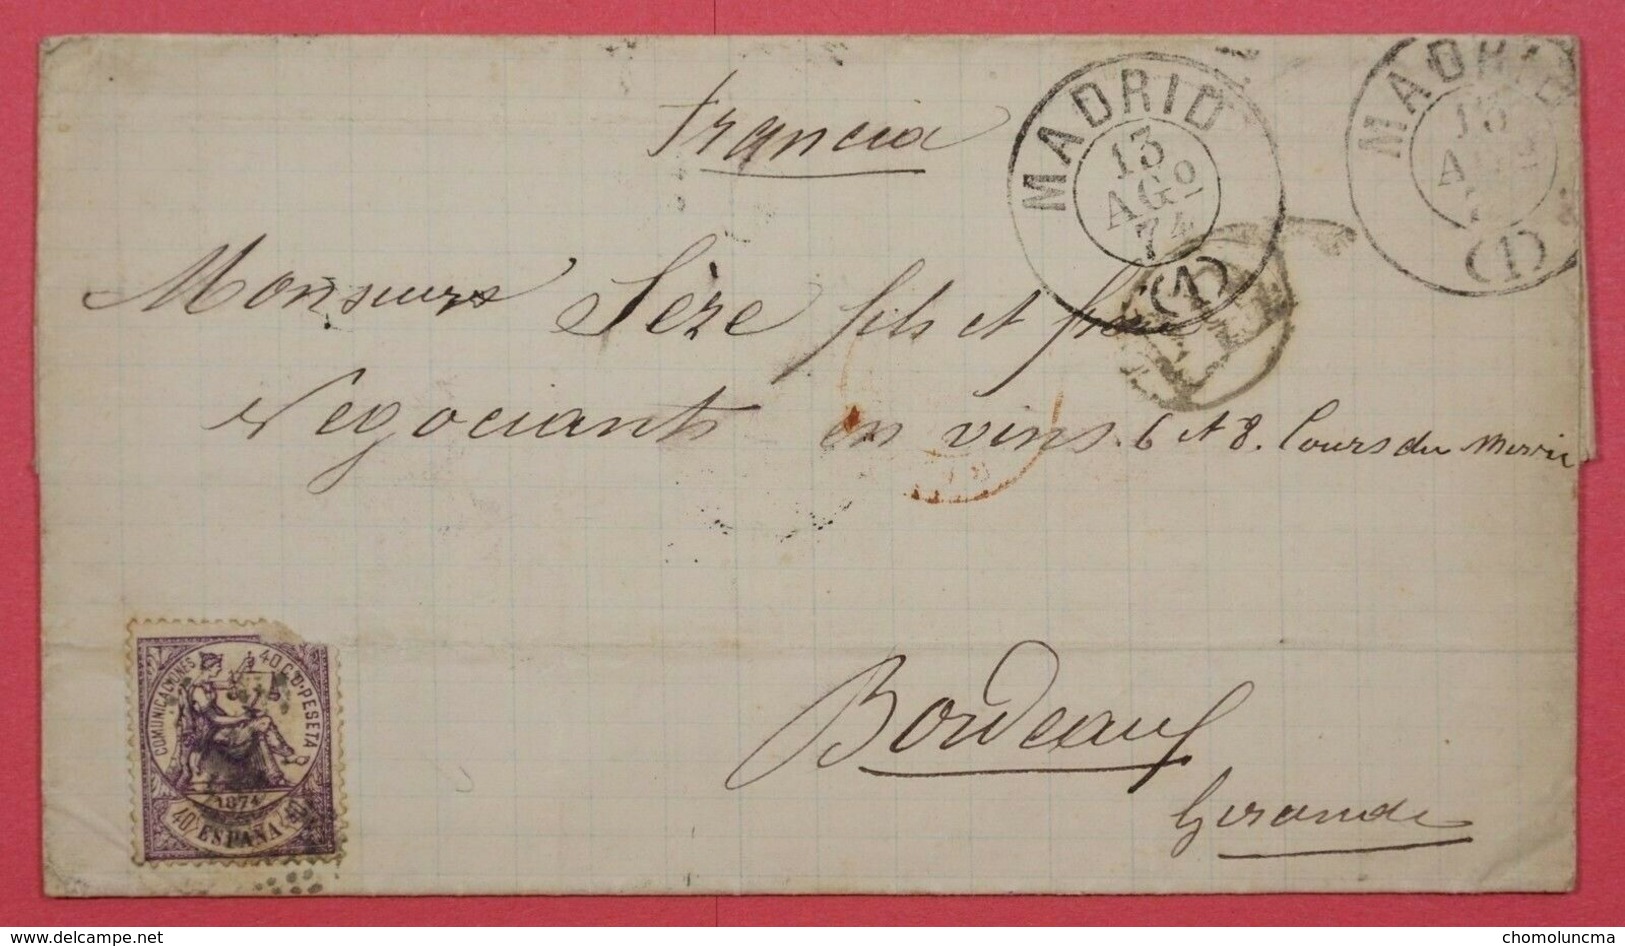 Francia
MADRID
13
AGO
74
(1)
MADRID
13
(1)
Monsieurs Sère fils et frère
Negociants en vins. 6 et 8. Cours du
Bordeaux
Gironde
COMUNICACIONES 40 Cs D PESETA
1874
40 ESPAÑA 40
delcampe.net
chomoluncma